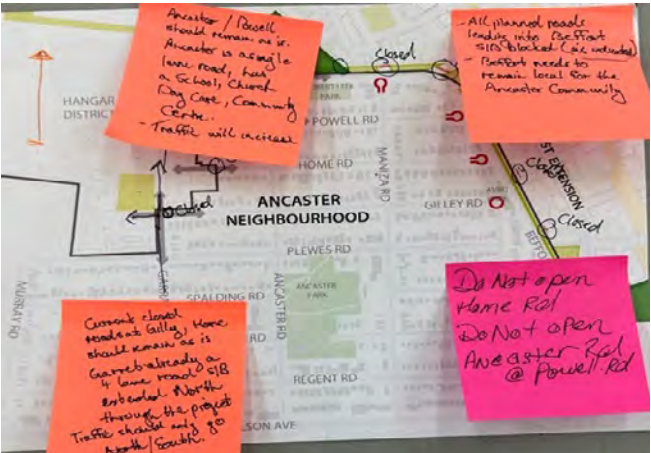 Ancaster / Powell
should remain as is.
Ancaster is a single
lane road, has
a School, Church
Day Care, Community
Centre.
- Traffic will increase
- All planned roads
leading into Beffort
S/B blocked (pic included)
- Beffort needs to
remain local for the
Ancaster Community
Closed
HANGAR
DISTRICT
PARK
POWELL RD
HOME RD
MANIZA RD
ANCASTER
NEIGHBOURHOOD
GILLEY RD
EXTENSION
Closed
Closed
PLEWES RD
SPALDING RD
ANCASTER
PARK
ANCASTER RD
MURRAY RD
REGENT RD
SON AVE
Current closed
roads at Gilly, Home
should remain as is
Garret already a
4 lane road S/B
extended North
through the project
Traffic should only go
North/South.
Do Not open
Home Rd
Do Not open
Ancaster Rd
@ Powell Rd